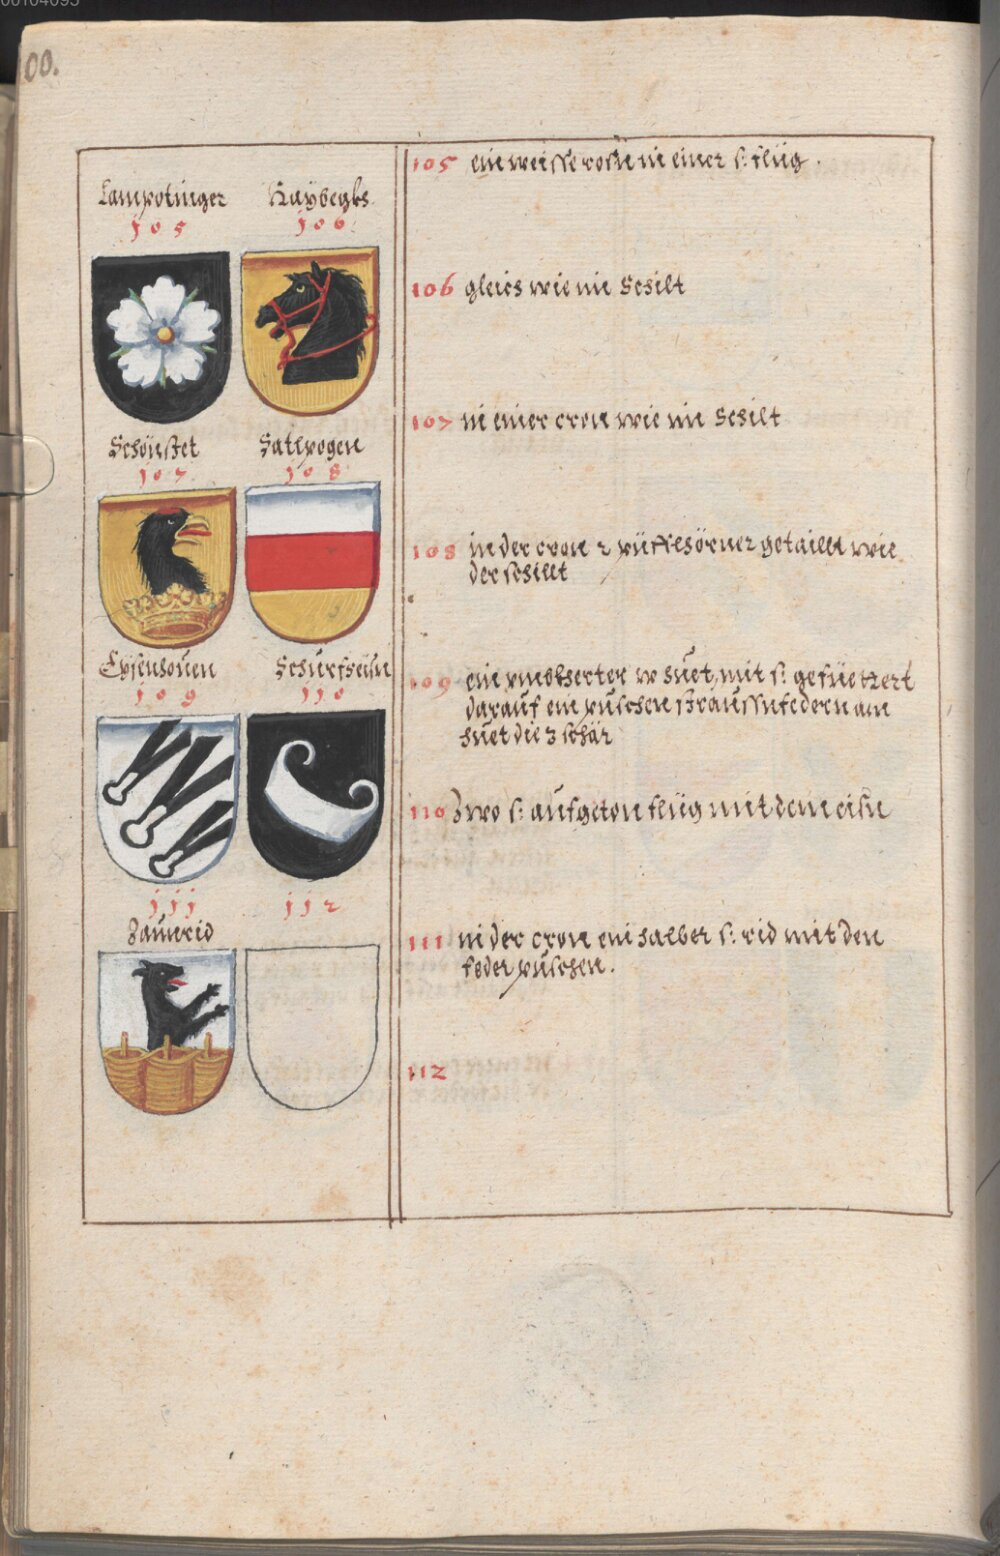 00104095
00.
Lampotinger
105
Haÿbeckh
106
Schönstet
107
Satlpogen
108
109
Schürfseisn
110
111
Zaünrid
112
105 ein weisse rosn in einer s: flüg.
106 gleichs wie im Schilt
107 in einer cron wie im Schilt
108 in der cron 2 püffhörner getailt wie
der schilt
109 ein w hüet, mit s: gefüettert
darauf ein püschen straüssnfedern am
hüet die 3 schär
110 Zwo s: aufgeton flüg mit dem eisn
111 in der cron ein halber s: rid mit den
feder püschen.
112